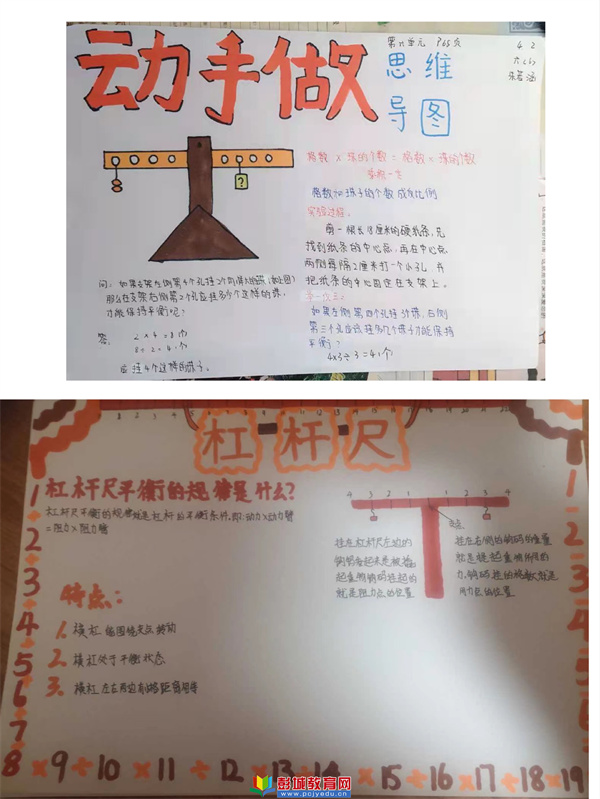 动手做
第六单元 P65页
思维
导图
格数 × 珠的个数 = 格数 × 珠的个数
格数和珠子的个数成反比例
实验过程:
剪一根长18厘米的硬纸条,先
找到纸条的中心点,再在中心点
两侧每隔2厘米打一个小孔,并
把纸条的中心固定在支架上。
如果左侧第四个孔挂3个珠,右侧
第三个孔应该挂几个珠才能保持
平衡?
4×3÷3=4(个)
?
那么在支架右侧第2个孔应挂多少个这样的珠,
才能保持平衡呢?
答:
2×4=8(个)
8÷2=4(个)
应挂4个这样的珠子。
杠杆尺
杠杆尺平衡的规律是什么?
杠杆尺平衡的规律就是杠杆的平衡条件,即:动力×动力臂
=阻力×阻力臂
4 3 2 1 1 2 3 4
支点
挂在杠杆尺左边的
钩码看起来是被撬
起重物钩码挂起的
就是阻力点的位置
挂在右侧的钩码的重量
就是撬起重物所用的
用力点的位置
特点:
1. 横杠能围绕支点转动
2. 横杠处于平衡状态
3. 横杠左右两边有等距离相等
1÷2÷3÷4÷5÷6÷7÷
8×9÷10×11÷12×13÷14×15÷16×17÷18×19
彭城教育网
www.pcjyedu.cn